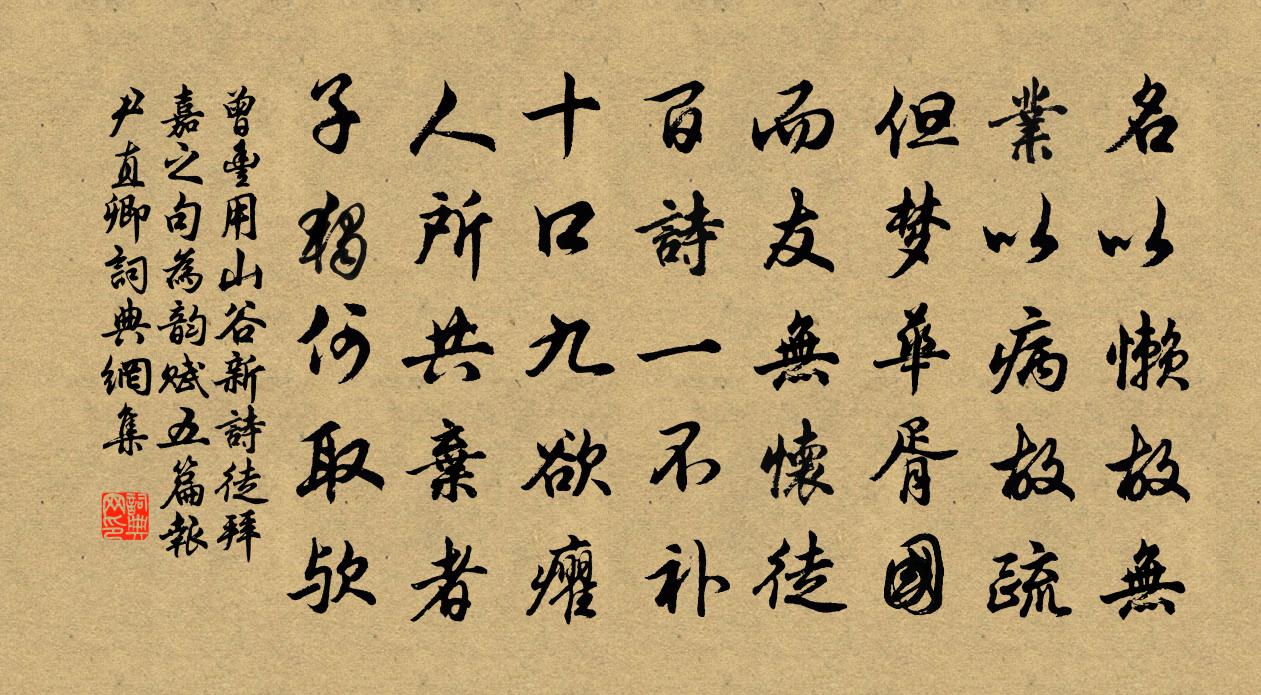 名以懒故無
業以病故疏
但梦華胥國
而友無懷徒
百詩一不补
十口九欲癯
人所共棄者
子獨何取欤
曾豐用山谷新詩徒拜
嘉之句為韵赋五篇報
尹直卿詞典網集
詞典
网印